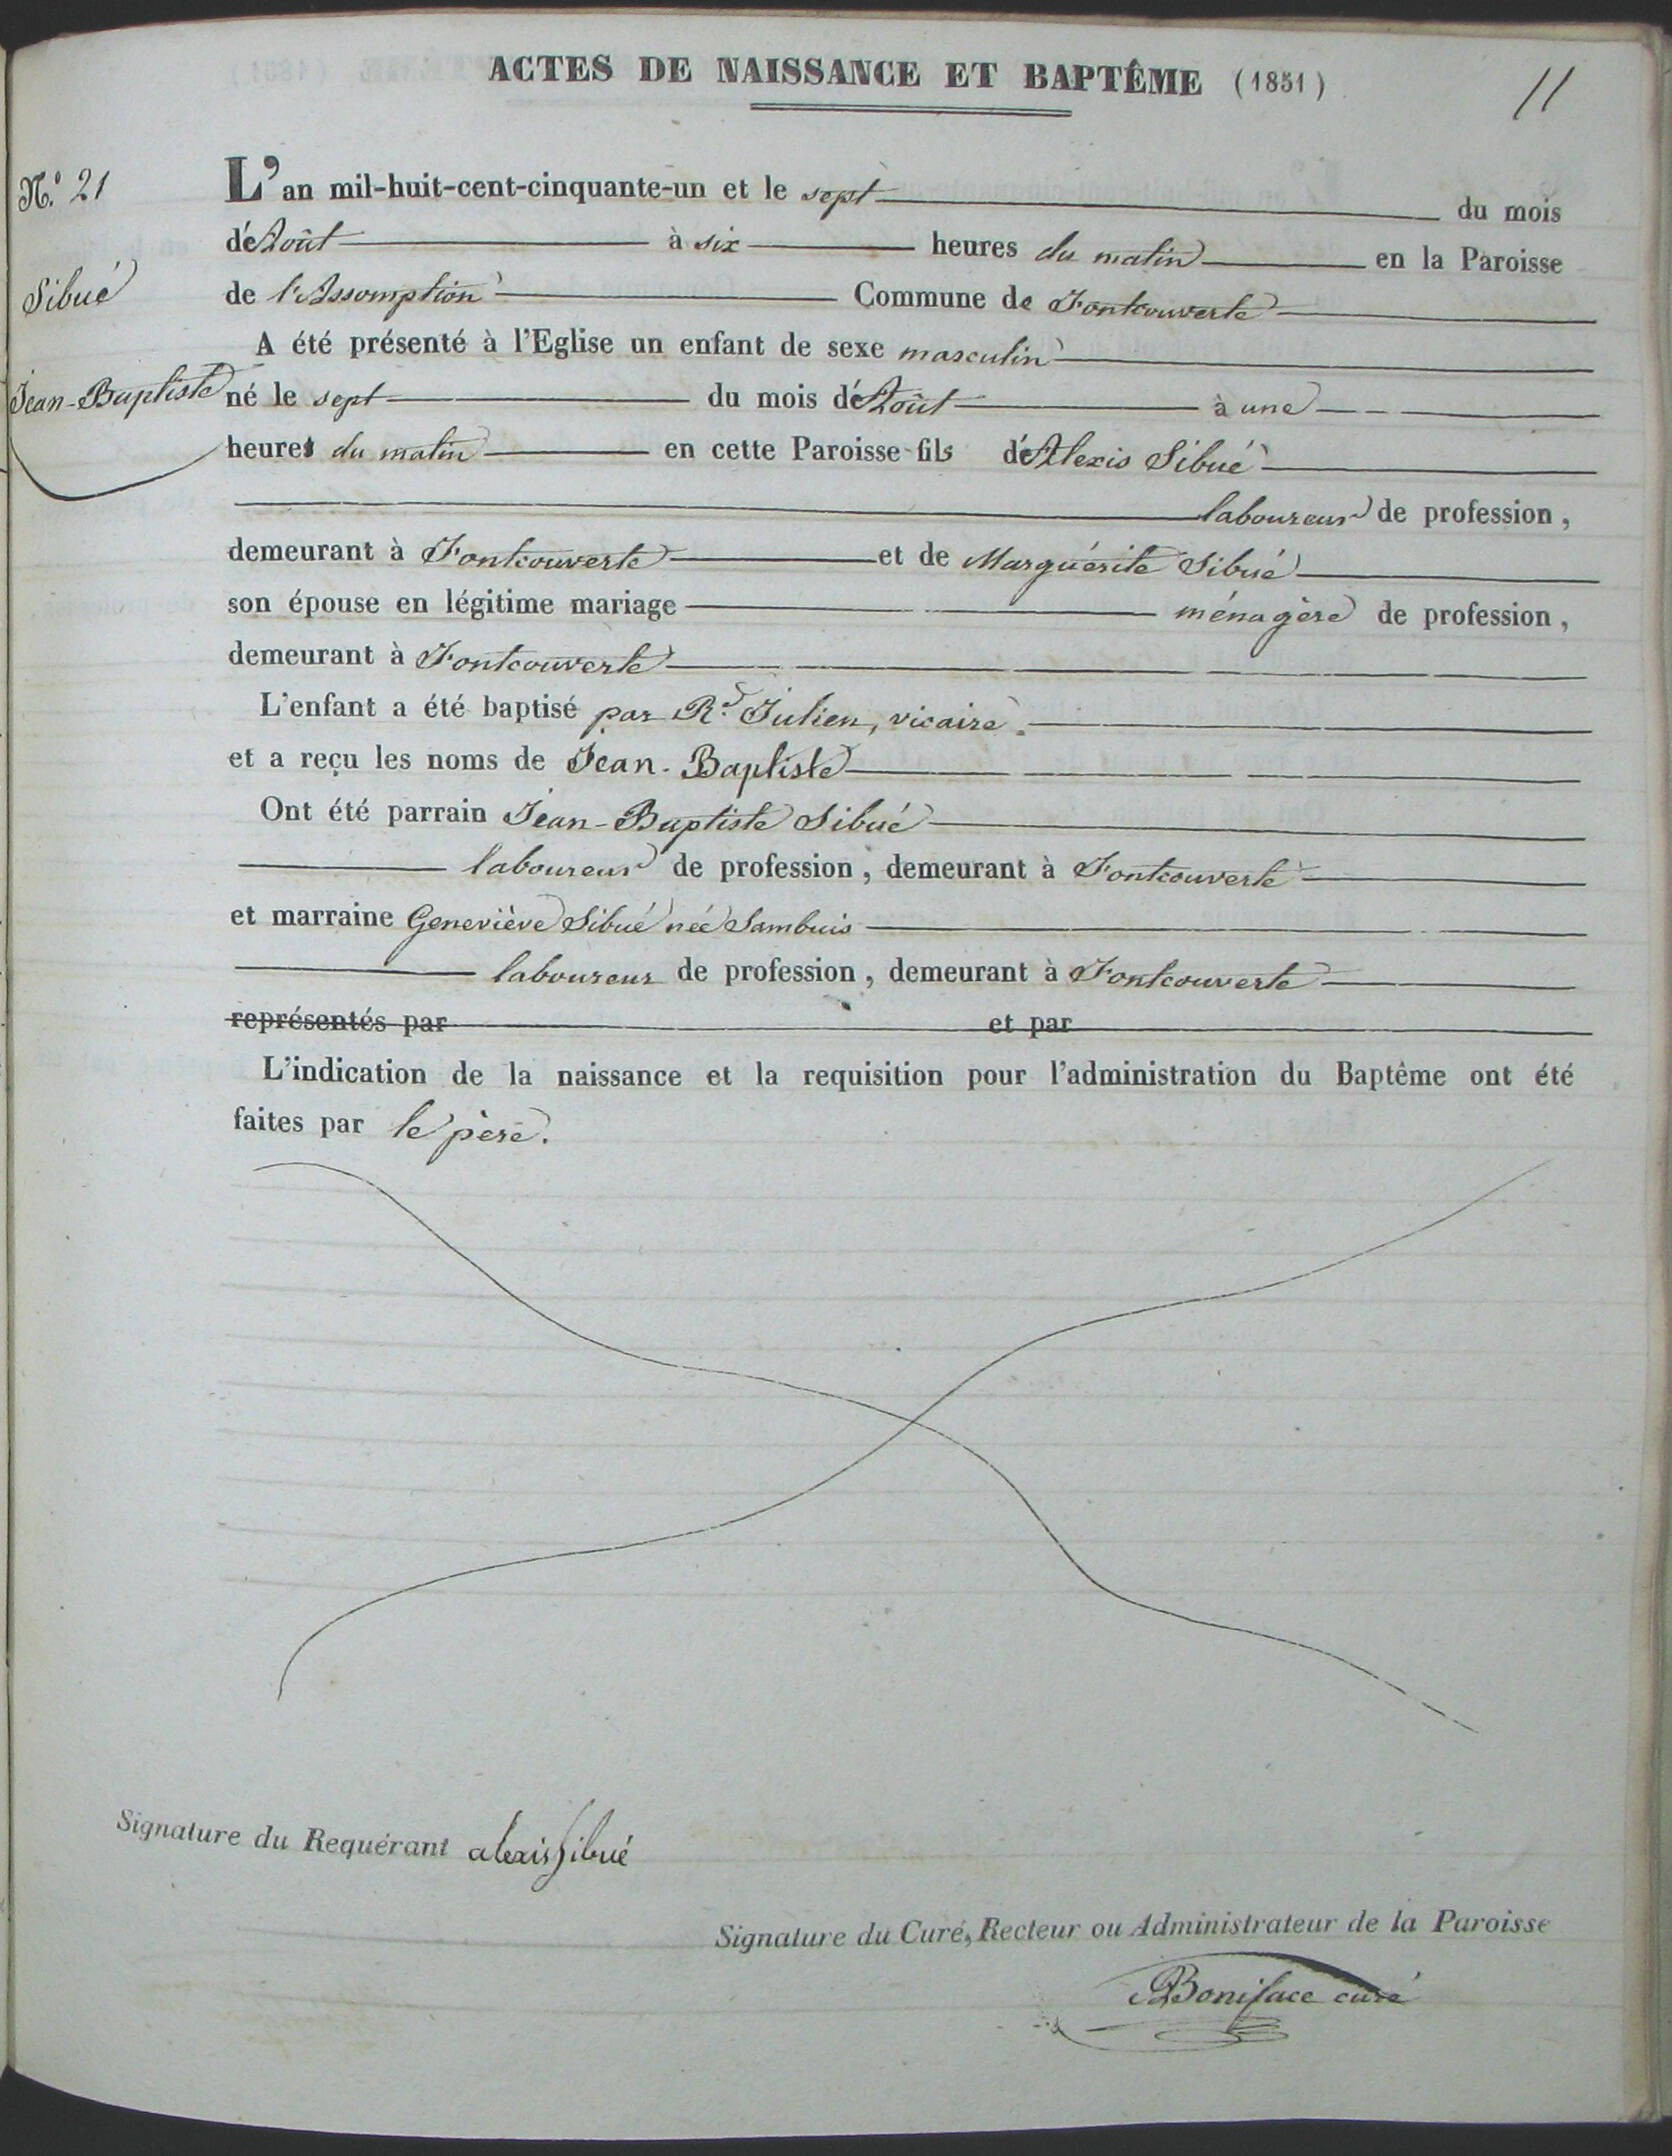 ACTES DE NAISSANCE ET BAPTÊME (1851)
11
N.° 21
Sibué
Jean-Baptiste
L'an mil-huit-cent-cinquante-un et le sept du mois
d'Août à six heures du matin en la Paroisse
de l'Assomption Commune de Fontcouverte
A été présenté à l'Eglise un enfant de sexe masculin
né le sept du mois d'Août à une
heure du matin en cette Paroisse fils d'Alexis Sibué
laboureur de profession,
demeurant à Fontcouverte et de Marguérite Sibué
son épouse en légitime mariage ménagère de profession,
demeurant à Fontcouverte
L'enfant a été baptisé par R.d Julien, vicaire.
et a reçu les noms de Jean-Baptiste
Ont été parrain Jean-Baptiste Sibué
laboureur de profession, demeurant à Fontcouverte
et marraine Geneviève Sibué née Sambuis
laboureur de profession, demeurant à Fontcouverte
représentés par et par
L'indication de la naissance et la requisition pour l'administration du Baptême ont été
faites par le père.
Signature du Requérant alexis Sibué
Signature du Curé, Recteur ou Administrateur de la Paroisse
Boniface curé